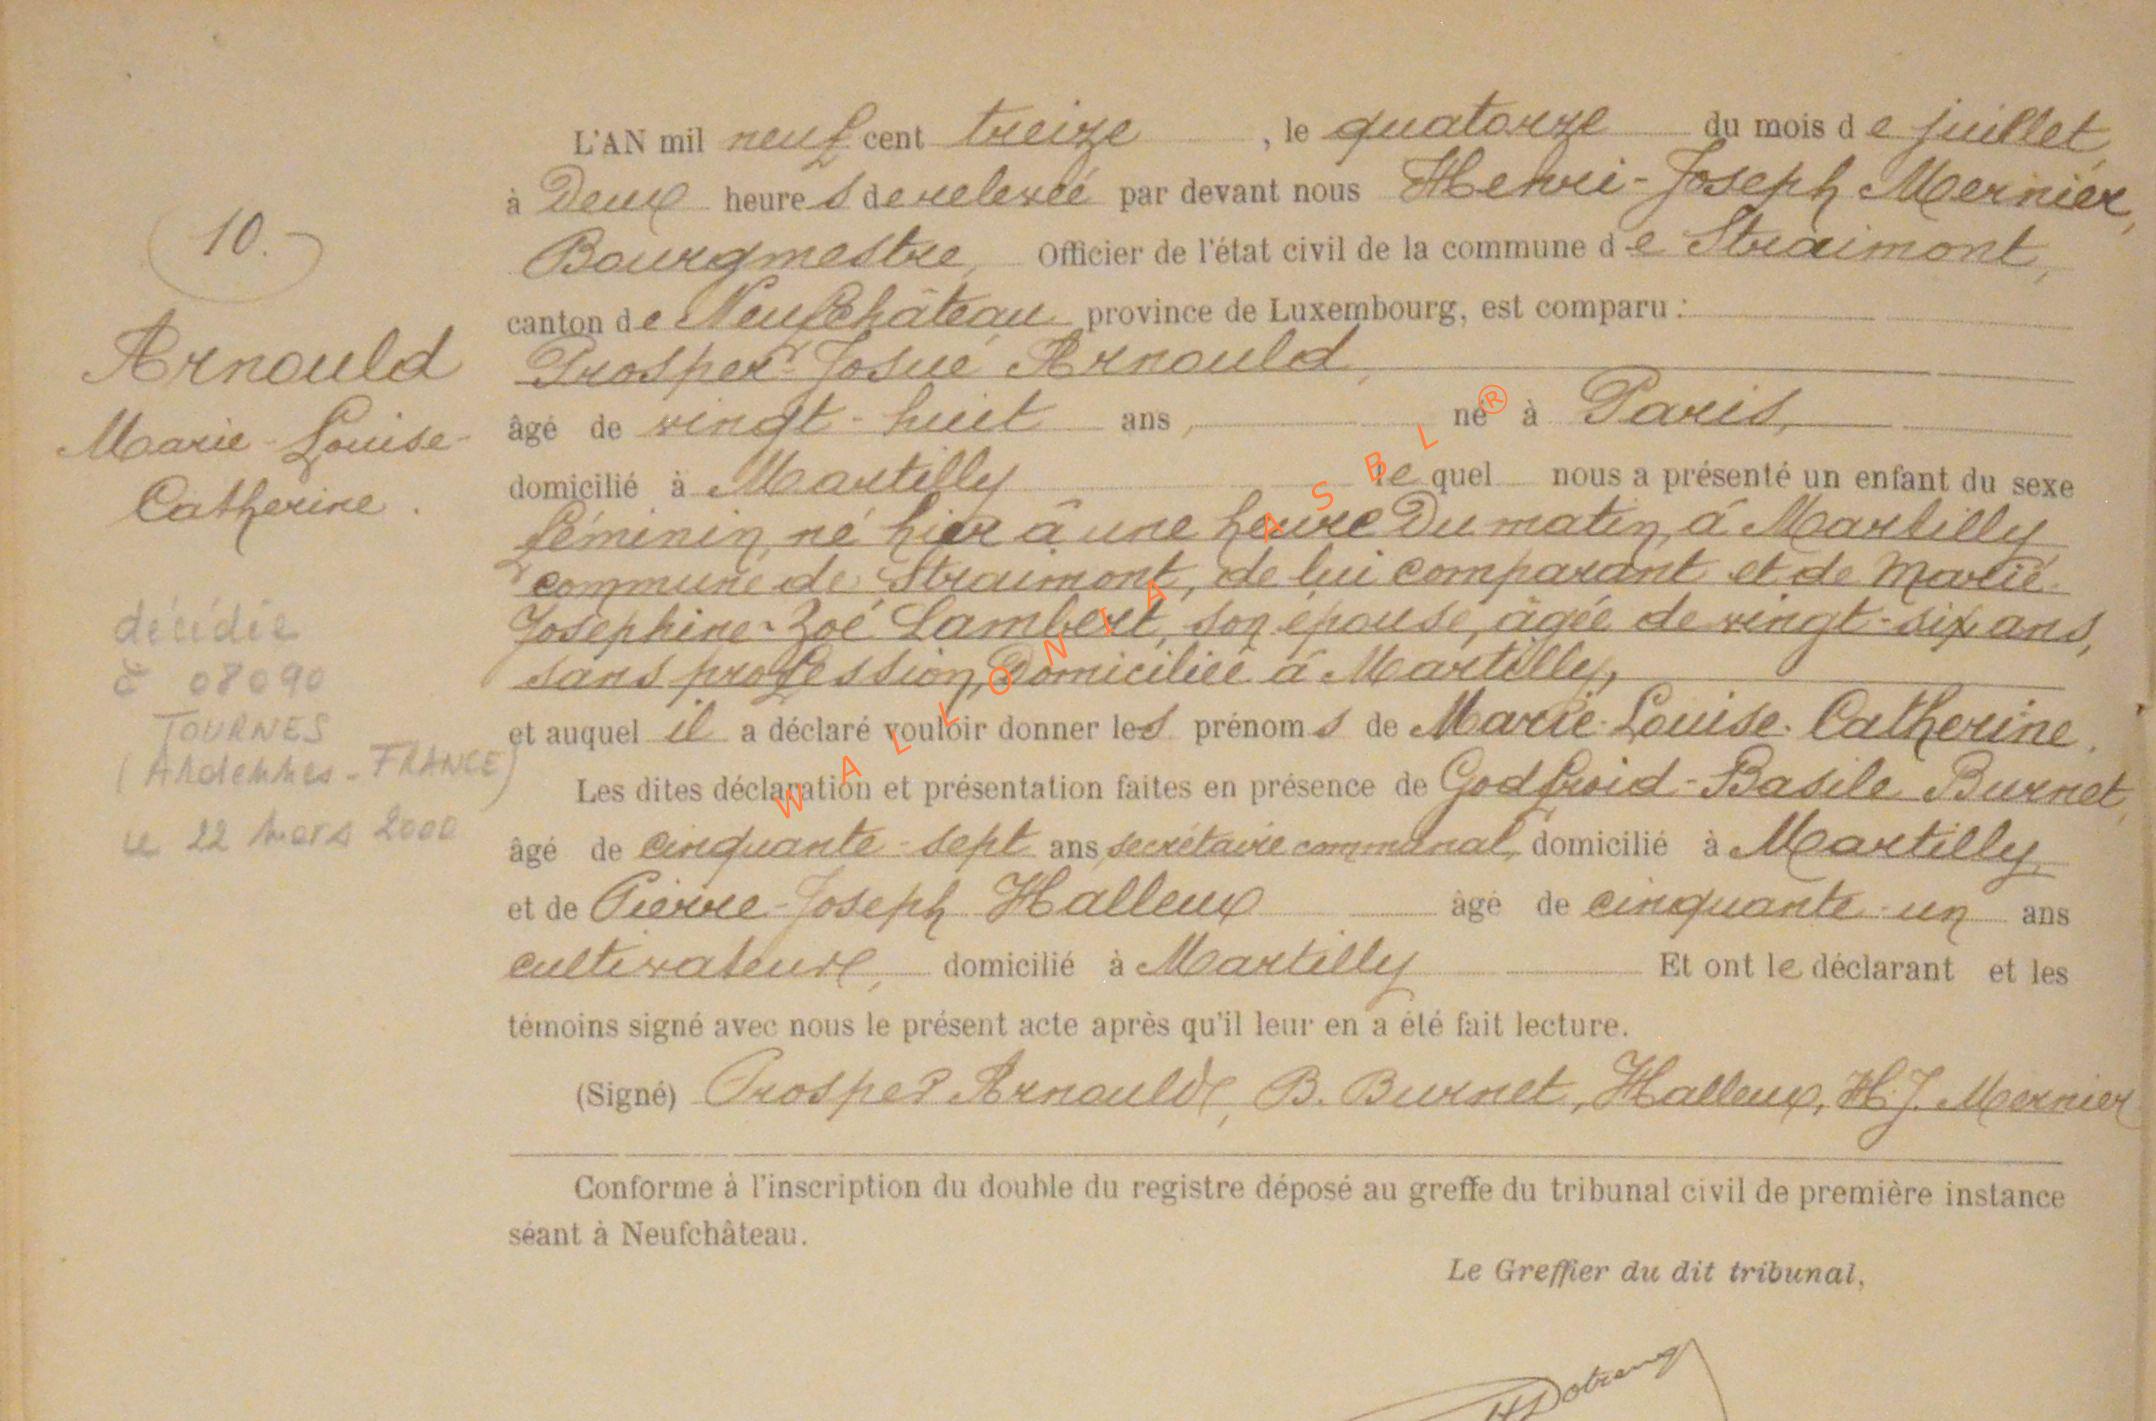 10.
Arnould
Marie-Louise-
Catherine.
décédée
à 08090
TOURNES
(Ardennes - FRANCE)
le 22 mars 2000
L'AN mil neuf cent treize, le quatorze du mois de juillet,
à Deux heures de relevée par devant nous Henri-Joseph Mernier,
Bourgmestre, Officier de l'état civil de la commune de Straimont,
canton de Neufchâteau province de Luxembourg, est comparu :
Prosper-Josué Arnould,
âgé de vingt-huit ans, né à Paris,
domicilié à Martilly lequel nous a présenté un enfant du sexe
féminin, né hier à une heure Du matin, à Martilly
commune de Straimont, de lui comparant et de Marie-
Josephine-Zoé Lambert, son épouse, âgée de vingt-six ans,
sans profession, Domiciliée à Martilly,
et auquel il a déclaré vouloir donner les prénoms de Marie-Louise-Catherine.
Les dites déclaration et présentation faites en présence de Godfroid-Basile Burnet,
âgé de cinquante-sept ans, secrétaire communal, domicilié à Martilly,
et de Pierre-Joseph Halleux âgé de cinquante-un ans
cultivateur, domicilié à Martilly Et ont le déclarant et les
témoins signé avec nous le présent acte après qu'il leur en a été fait lecture.
(Signé) Prosper Arnould, B. Burnet, Halleux, H.J. Mernier
Conforme à l'inscription du double du registre déposé au greffe du tribunal civil de première instance
séant à Neufchâteau.
Le Greffier du dit tribunal,
WALLONIA ASBL ®